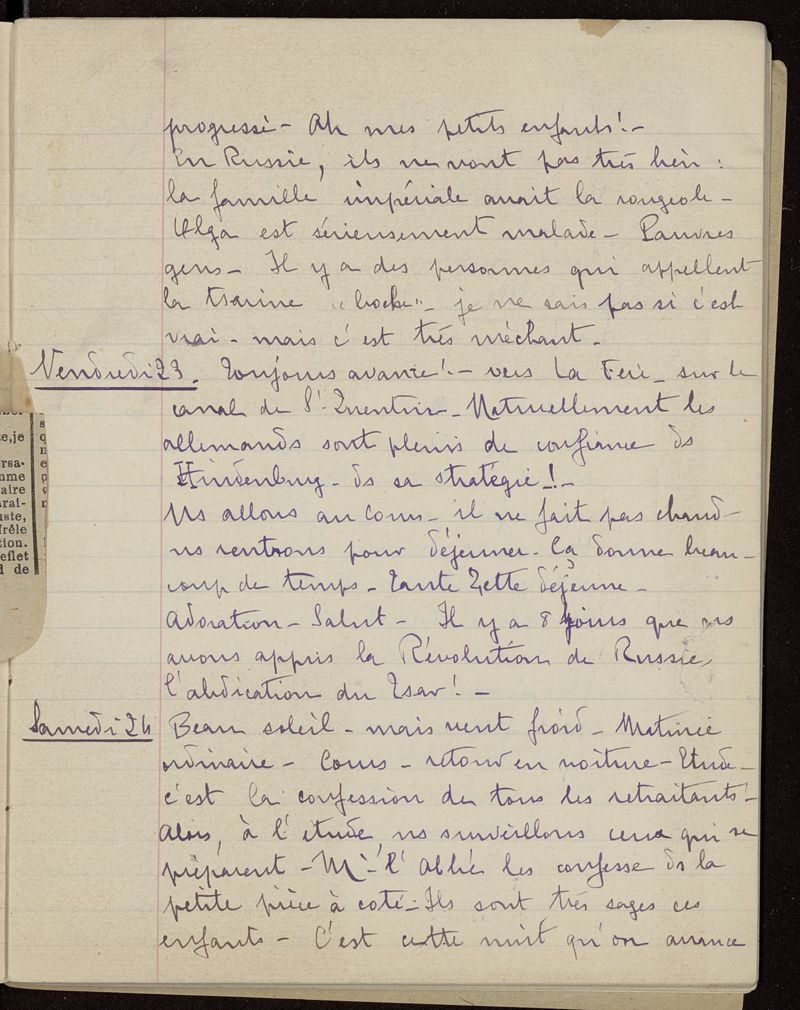 progressé - Ah mes petits enfants ! -
En Russie, ils ne vont pas très bien :
la famille impériale avait la rougeole -
Olga est sérieusement malade - Pauvres
gens - Il y a des personnes qui appellent
la tsarine "boche" - je ne sais pas si c'est
vrai - mais c'est très méchant -
Vendredi 23 - Toujours avance ! - vers La Fère - sur le
canal de St Quentin - Naturellement les
allemands sont pleins de confiance ds
Hindenburg - ds sa stratégie ! -
Ns allons au cours - il ne fait pas chaud -
ns rentrons pour déjeuner - Ça donne beau-
coup de temps - Tante Zette déjeune -
Adoration - Salut - Il y a 8 jours que ns
avons appris la Révolution de Russie,
l'abdication du Tsar ! -
Samedi 24 Beau soleil - mais vent froid - Matinée
ordinaire - Cours - retour en voiture - Etude -
c'est la confession de tous les retraitants ! -
Alors, à l'étude, ns surveillons ceux qui se
préparent - Mr l'Abbé les confesse ds la
petite pièce à coté - Ils sont très sages ces
enfants - C'est cette nuit qu'on avance
te,je
ersa-
mme
aire
rai-
uste,
frêle
tion.
eflet
d de